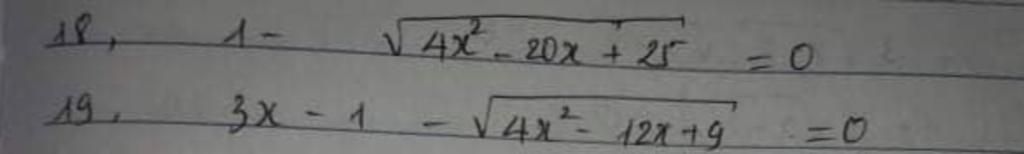 18, 1 - √(4x² - 20x + 25) = 0
19, 3x - 1 - √(4x² - 12x + 9) = 0